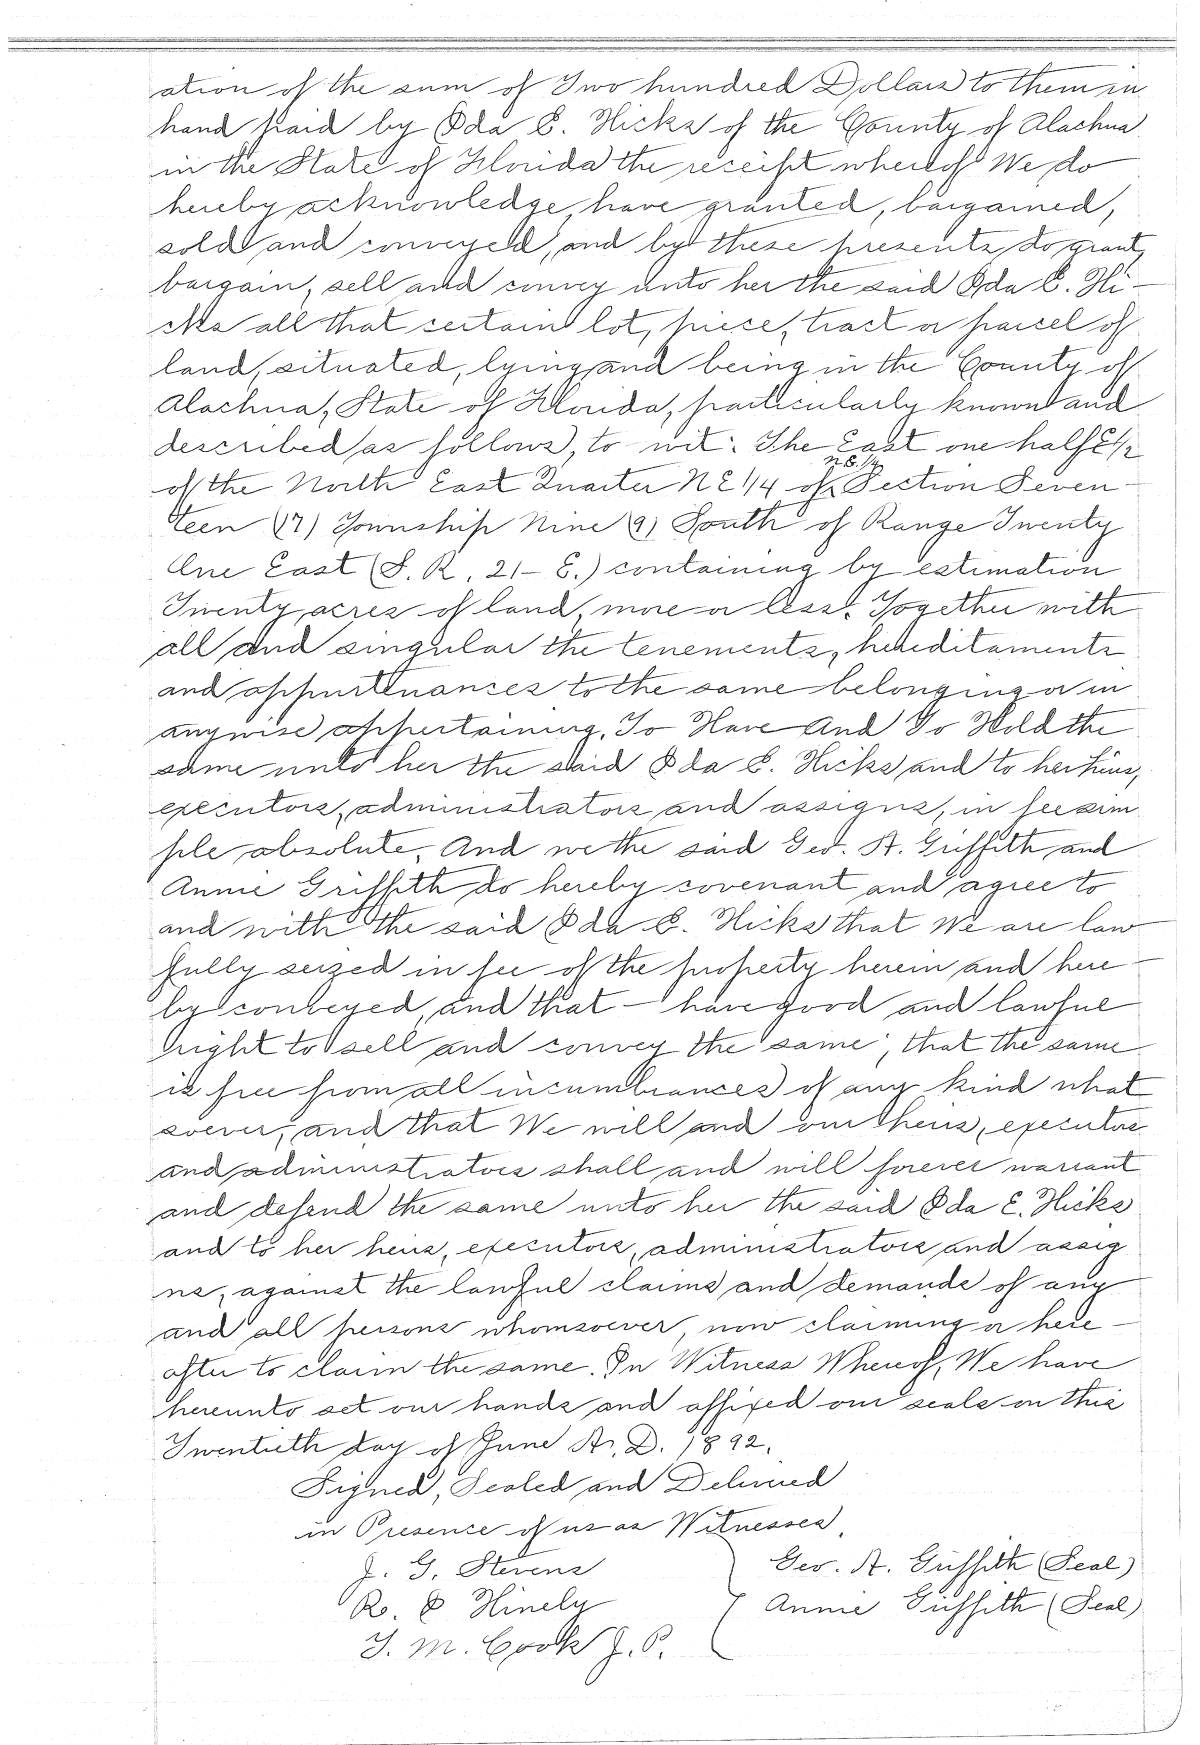 ation of the sum of Two hundred Dollars to them in
hand paid by Ida E. Hicks of the County of Alachua
in the State of Florida the receipt whereof We do
hereby acknowledge, have granted, bargained,
sold and conveyed, and by these presents do grant,
bargain, sell and convey unto her the said Ida E. Hi-
cks all that certain lot, piece, tract or parcel of
land, situated, lying and being in the County of
Alachua, State of Florida, particularly known and
described as follows, to wit: The East one half E½
N.E. 1/4
of the North East Quarter N E 1/4 of Section Seven-
teen (17) Township Nine (9) South of Range Twenty
One East (S. R. 21- E.) containing by estimation
Twenty acres of land, more or less. Together with
all and singular the tenements, hereditaments
and appurtenances to the same belonging or in
anywise appertaining. To Have And To Hold the
same unto her the said Ida E. Hicks and to her heirs,
executors, administrators and assigns, in fee sim
ple absolute. And we the said Geo. A. Griffith and
Annie Griffith do hereby covenant and agree to
and with the said Ida E. Hicks that We are law
fully seized in fee of the property herein and here-
by conveyed, and that - have good and lawful
right to sell and convey the same; that the same
is free from all incumbrances of any kind what
soever; and that We will and our heirs, executors
and administrators shall and will forever warrant
and defend the same unto her the said Ida E. Hicks
and to her heirs, executors, administrators and assig
ns, against the lawful claims and demands of any
and all persons whomsoever, now claiming or here-
after to claim the same. In Witness Whereof, We have
hereunto set our hands and affixed our seals on this
Twentieth day of June A. D. 1892.
Signed, Sealed and Delivered
in Presence of us as Witnesses.
J. G. Stevens Geo. A. Griffith (Seal)
R. I Hinely Annie Griffith (Seal)
T. M. Cook J. P.